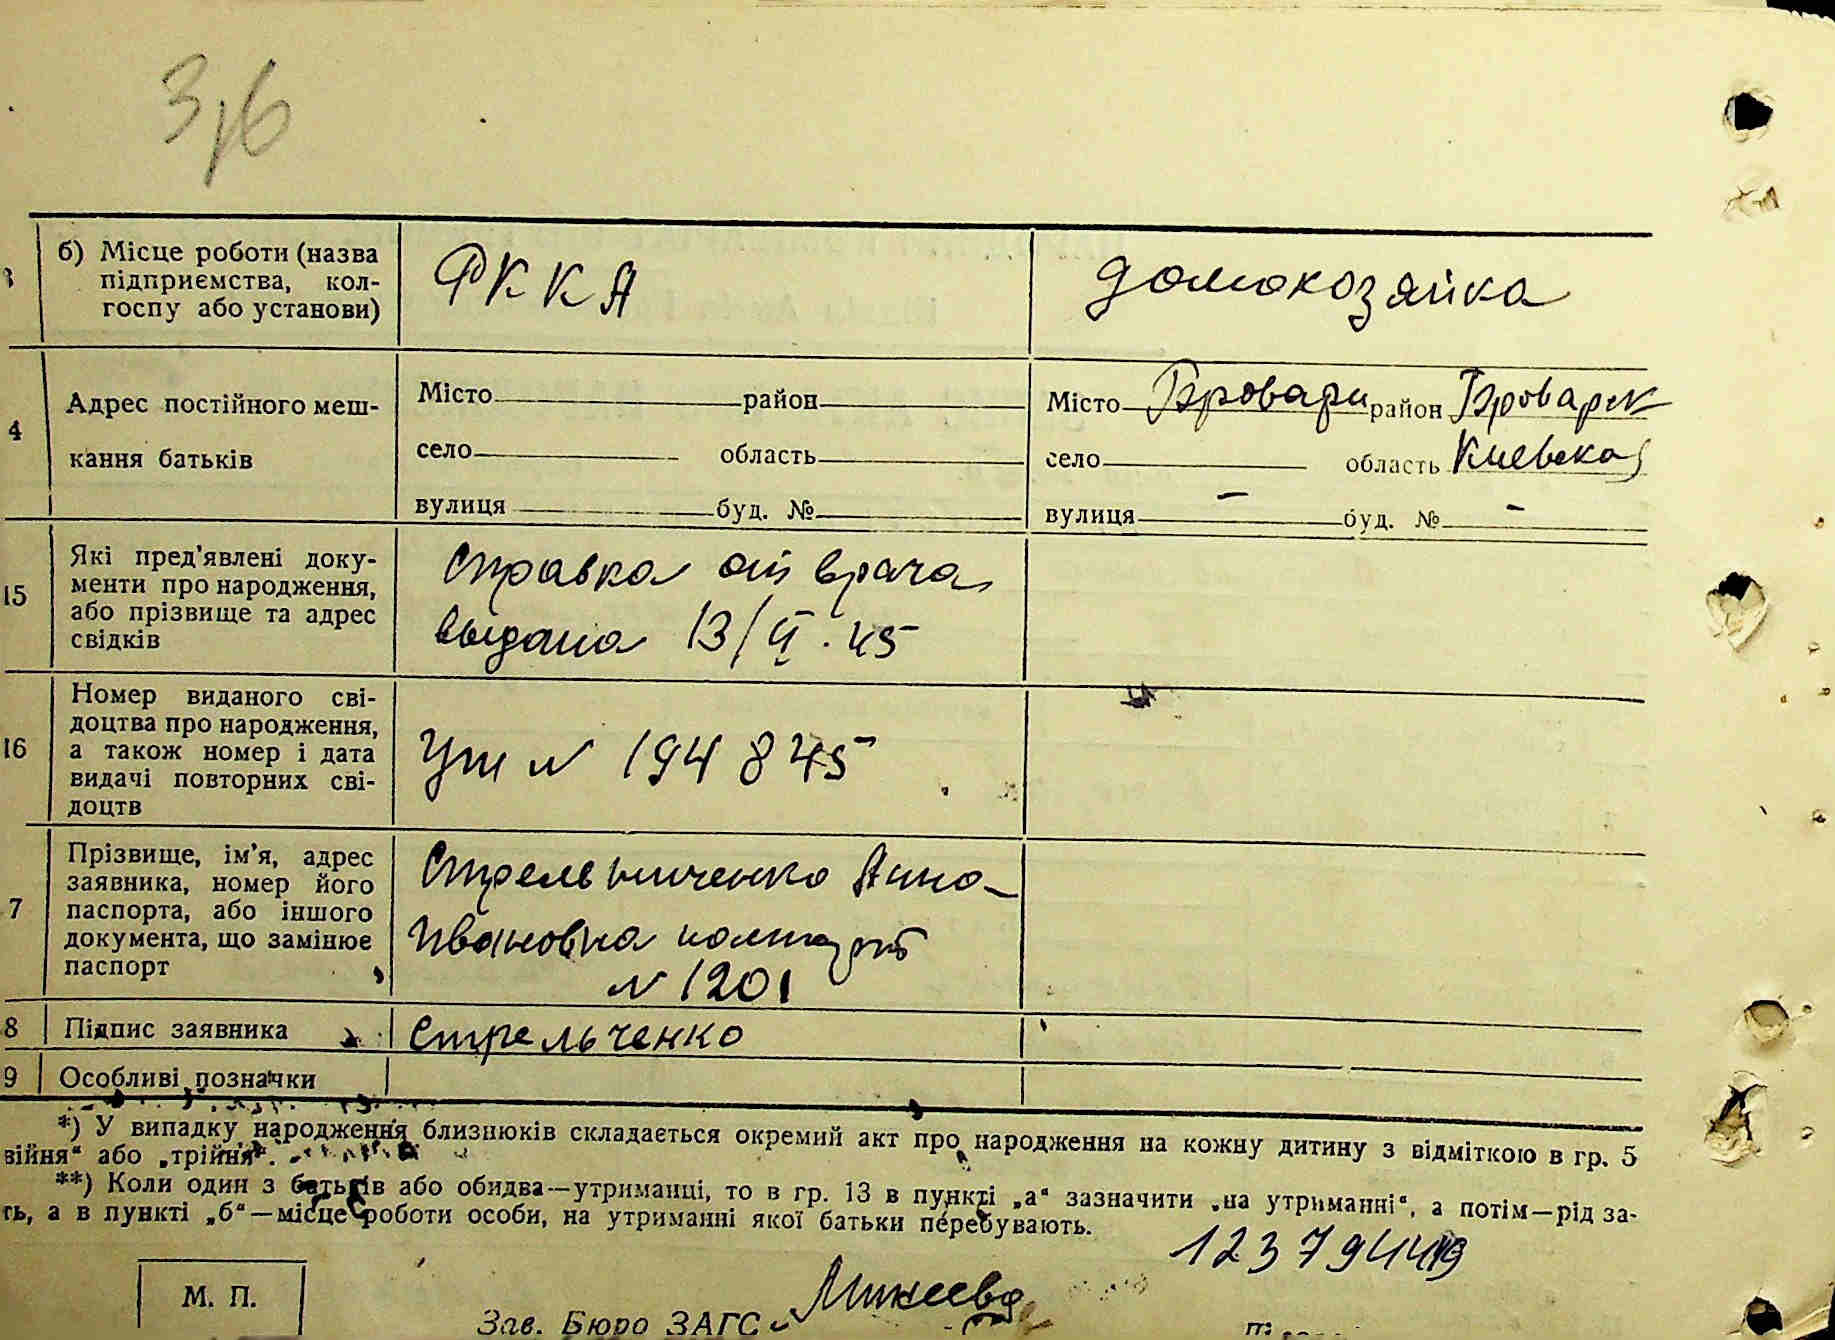 3/6
б) Місце роботи (назва
підприємства, кол-
госпу або установи)
РККА
домохозяйка
4
Адрес постійного меш-
кання батьків
Місто район
село область
вулиця буд. №
Місто Бровари район Броварск
село область Киевская
вулиця - буд. № -
15
Які пред'явлені доку-
менти про народження,
або прізвище та адрес
свідків
Справка от врача
выдана 13/II. 45
16
Номер виданого сві-
доцтва про народження,
а також номер і дата
видачі повторних сві-
доцтв
№ 194845
7
Прізвище, ім'я, адрес
заявника, номер його
паспорта, або іншого
документа, що замінює
паспорт
Стрельниченко Анна
Ивановна паспорт
№ 1201
8
Підпис заявника
Стрельченко
9
Особливі позначки
*) У випадку народження близнюків складається окремий акт про народження на кожну дитину з відміткою в гр. 5
війня" або „трійня".
**) Коли один з батьків або обидва—утриманці, то в гр. 13 в пункті „а" зазначити „на утриманні", а потім—рід за-
ть, а в пункті „б"—місце роботи особи, на утриманні якої батьки перебувають.
М. П.
Зав. Бюро ЗАГС Михеева